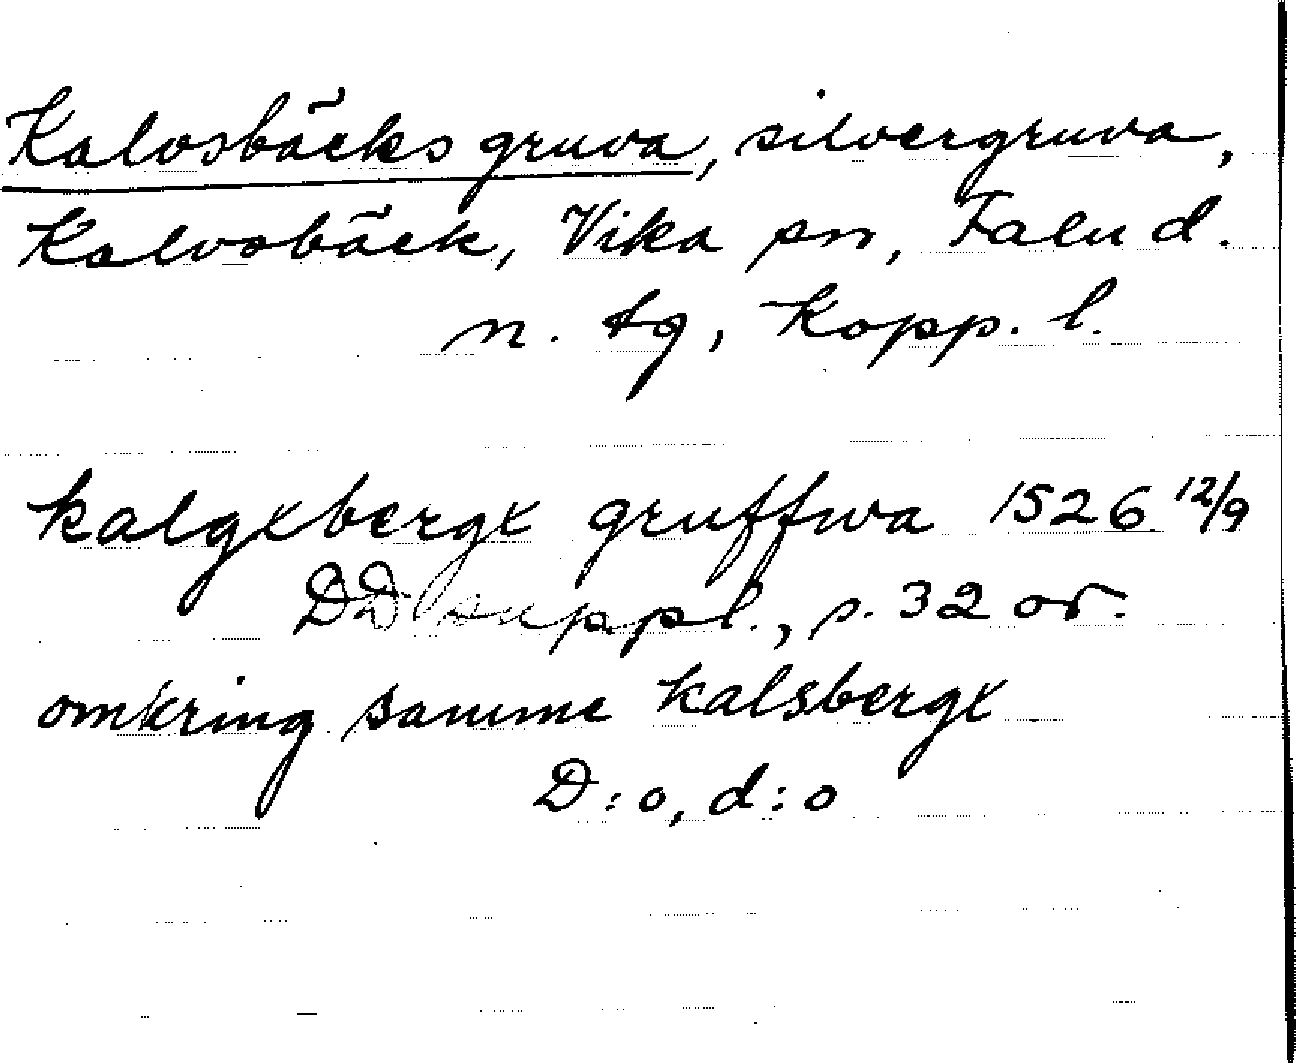 Kalvsbäcks gruva, silvergruva,
Kalvsbäck, Vika sn, Falu d.
n. tg, Kopp. l.
kalgxbergx gruffwa 1526 12/9
DD suppl., s. 32 or.
omkring samme kalsbergx
D:o, d:o